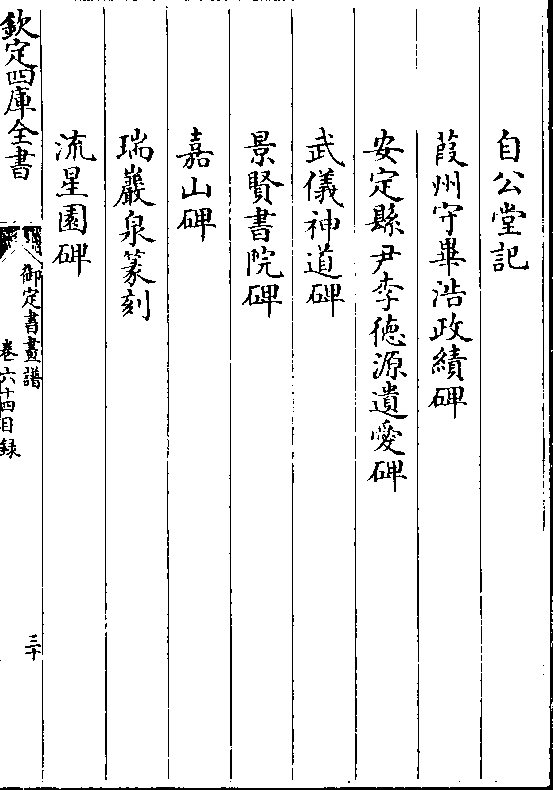 自公堂記
葭州守畢浩政績碑
安定縣尹李德源遺愛碑
武儀神道碑
景賢書院碑
嘉山碑
瑞巖泉篆刻
流星園碑
欽定四庫全書
御定書畫譜
卷六十四目録
三十